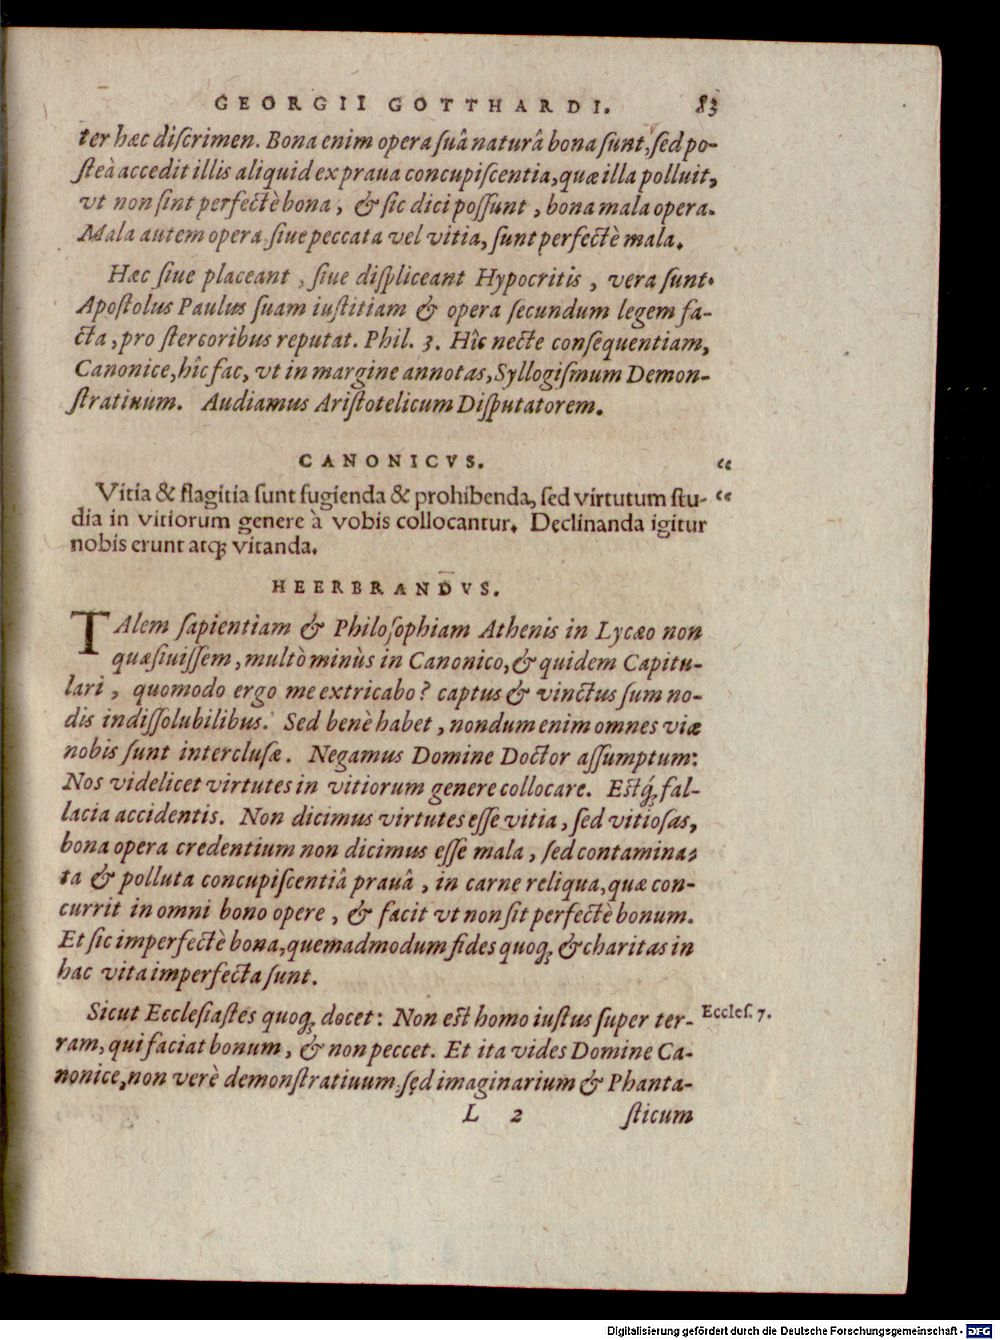 GEORGII GOTTHARDI. 83
ter hæc diſcrimen. Bona enim opera ſuâ naturâ bona ſunt, ſed po-
ſteà accedit illis aliquid ex praua concupiſcentia, quæ illa polluit,
vt non ſint perfectè bona, & ſic dici poſſunt, bona mala opera.
Mala autem opera, ſiue peccata vel vitia, ſunt perfectè mala.
Hæc ſiue placeant, ſiue diſpliceant Hypocritis, vera ſunt.
Apoſtolus Paulus ſuam iuſtitiam & opera ſecundum legem fa-
cta, pro ſtercoribus reputat. Phil. 3. Hîc necte conſequentiam,
Canonice, hîc fac, vt in margine annotas, Syllogiſmum Demon-
ſtratiuum. Audiamus Ariſtotelicum Diſputatorem.
CANONICVS. “
Vitia & flagitia ſunt fugienda & prohibenda, ſed virtutum ſtu- “
dia in vitiorum genere à vobis collocantur. Declinanda igitur
nobis erunt atq́; vitanda.
HEERBRANDVS.
TAlem ſapientiam & Philoſophiam Athenis in Lycæo non
quæſiuiſſem, multò minùs in Canonico, & quidem Capitu-
lari, quomodo ergo me extricabo? captus & vinctus ſum no-
dis indiſſolubilibus. Sed benè habet, nondum enim omnes viæ
nobis ſunt intercluſæ. Negamus Domine Doctor aſſumptum:
Nos videlicet virtutes in vitiorum genere collocare. Eſtq́; fal-
lacia accidentis. Non dicimus virtutes eſſe vitia, ſed vitioſas,
bona opera credentium non dicimus eſſe mala, ſed contamina-
ta & polluta concupiſcentiâ prauâ, in carne reliqua, quæ con-
currit in omni bono opere, & facit vt non ſit perfectè bonum.
Et ſic imperfectè bona, quemadmodum fides quoq; & charitas in
hac vita imperfecta ſunt.
Sicut Eccleſiaſtes quoq; docet: Non eſt homo iuſtus ſuper ter- Eccleſ. 7.
ram, qui faciat bonum, & non peccet. Et ita vides Domine Ca-
nonice, non verè demonſtratiuum, ſed imaginarium & Phanta-
L 2 ſticum
Digitalisierung gefördert durch die Deutsche Forschungsgemeinschaft - DFG